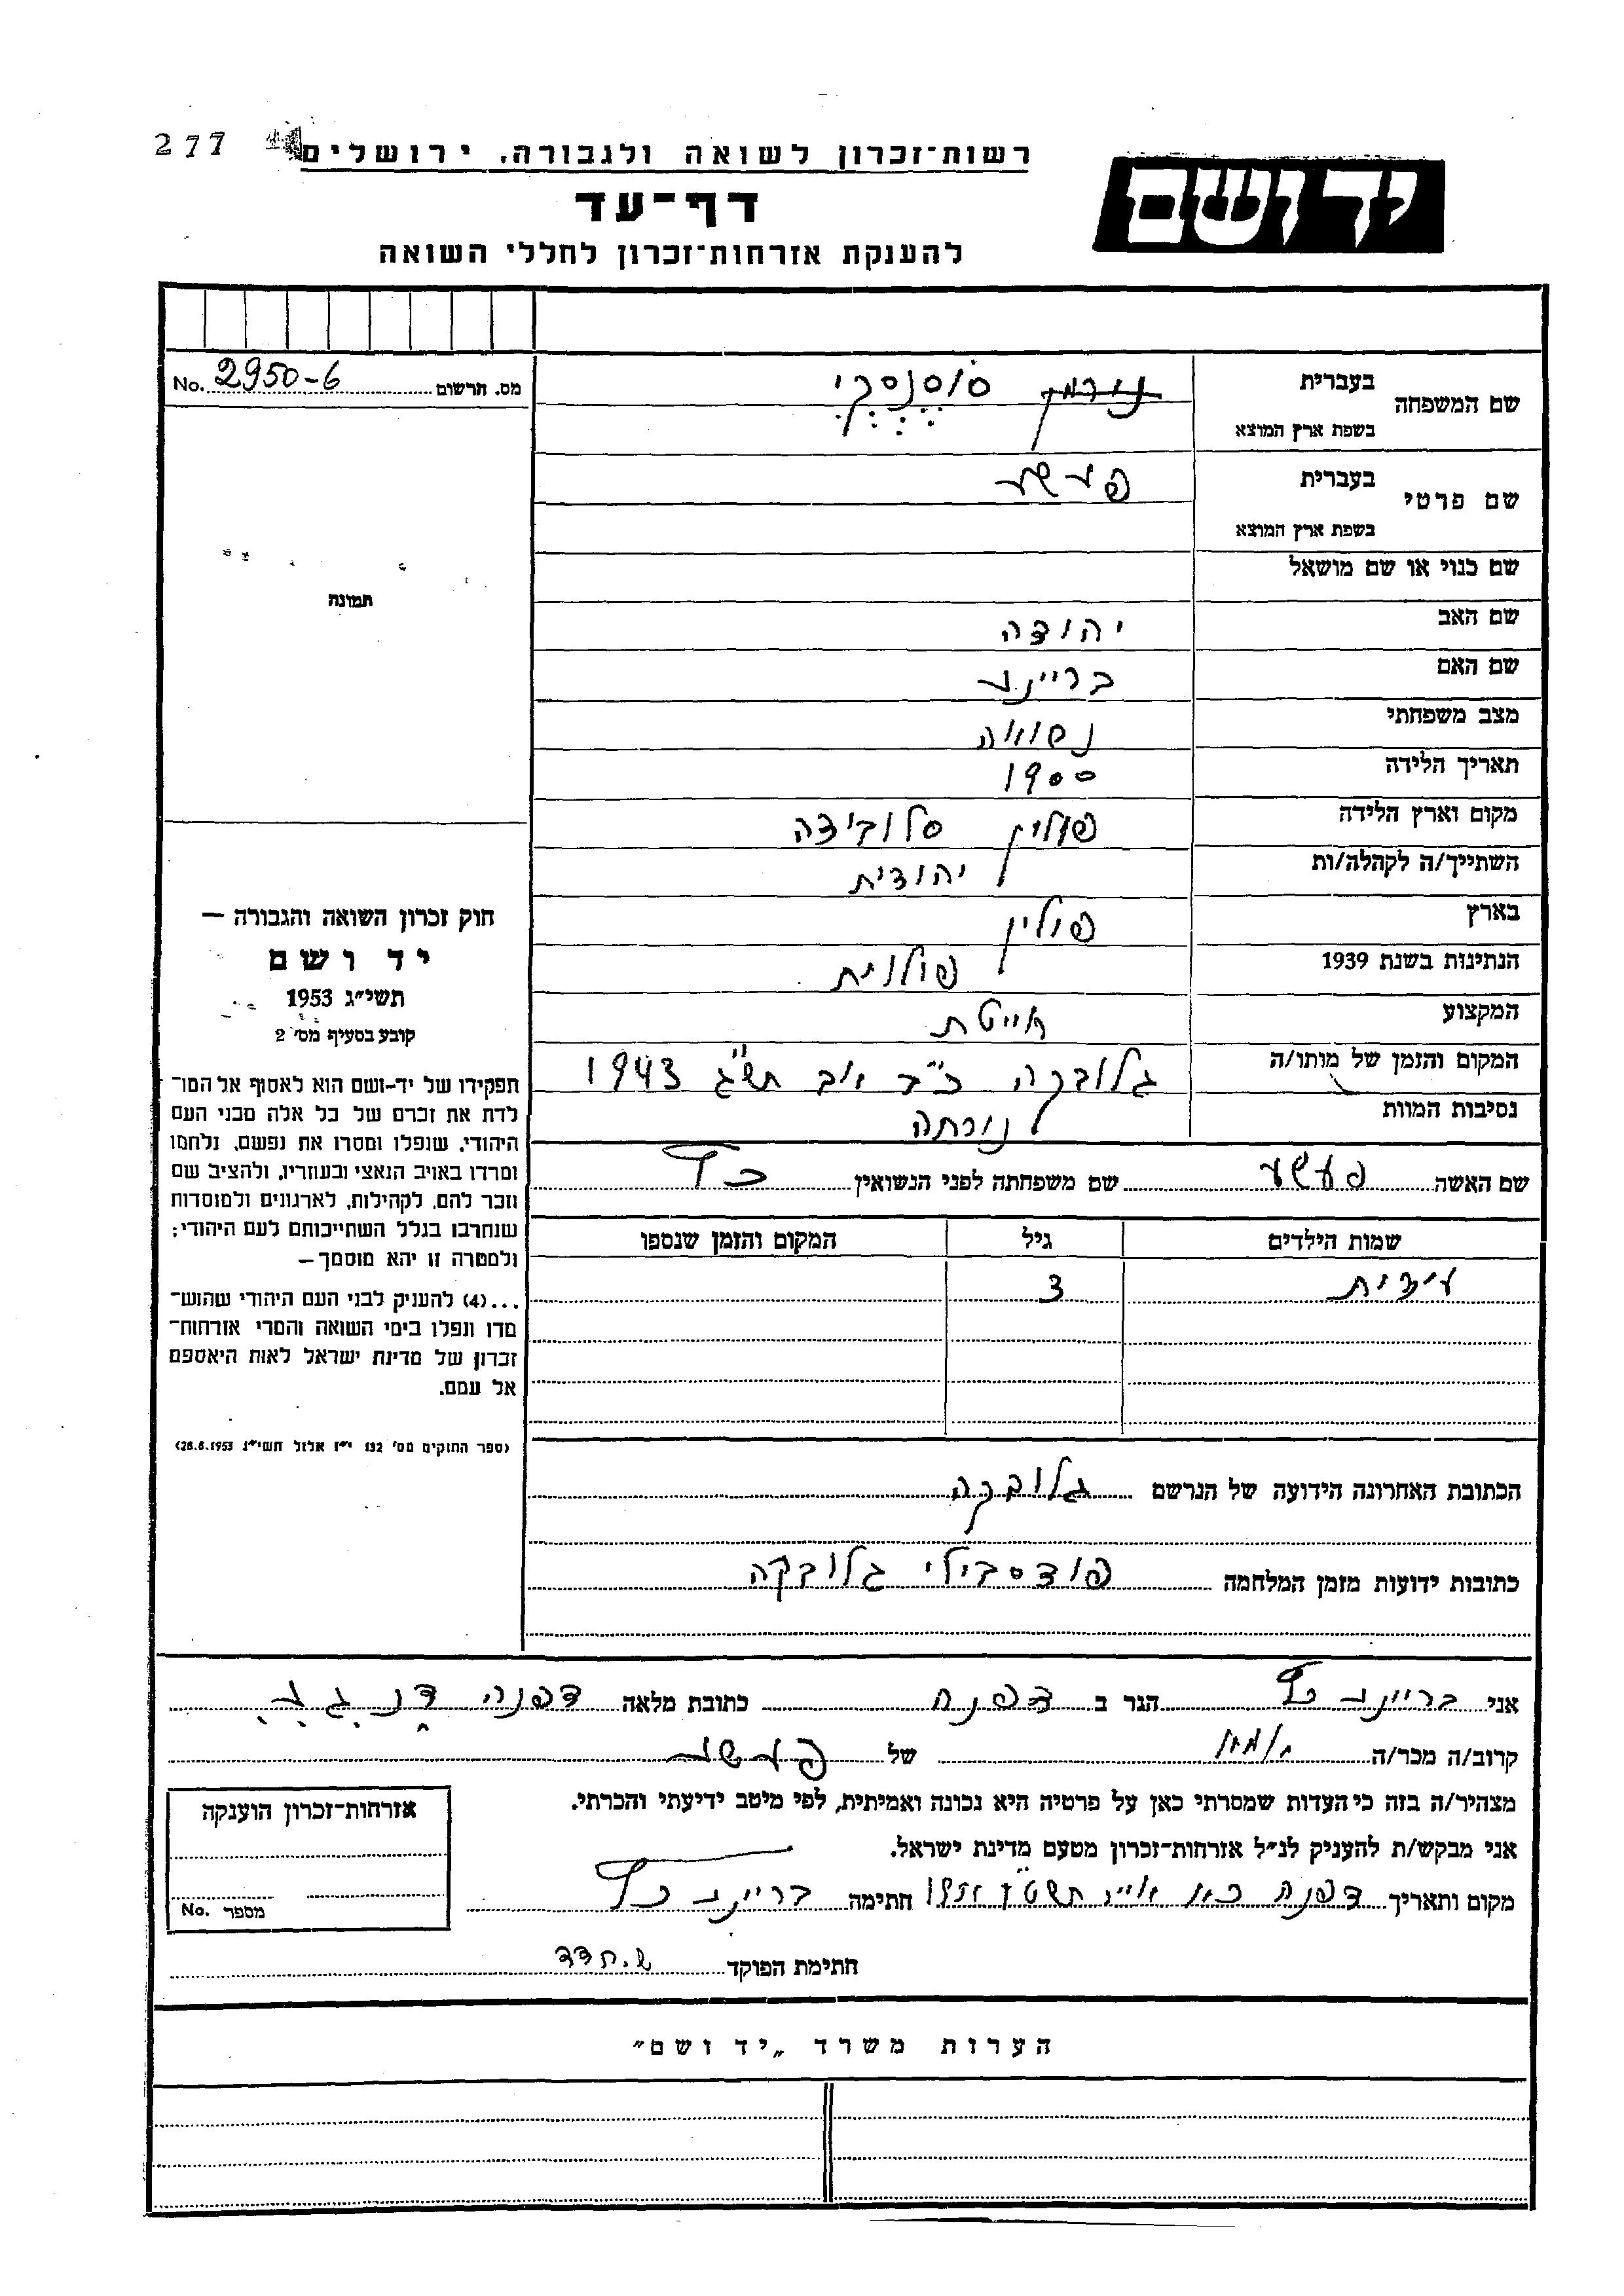 277
רשות-זכרון לשואה ולגבורה, ירושלים
יד ושם
דף-עד
להענקת אזרחות-זכרון לחללי השואה
מס. תרשום No. 2950-6
שם המשפחה בעברית סוסנסקי
בשפת ארץ המוצא
שם פרטי בעברית פעשע
בשפת ארץ המוצא
שם כנוי או שם מושאל
תמונה
שם האב יהודה
שם האם בריינע
מצב משפחתי נסואה
תאריך הלידה 1900
מקום וארץ הלידה פולין סלובידה
השתייך/ה לקהלה/ות יהודית
בארץ פולין
הנתינות בשנת 1939 פולנית
המקצוע
המקום והזמן של מותו/ה גלובקה כ"ב אב תש"ג 1943
נסיבות המוות
שם האשה פעשע שם משפחתה לפני הנשואין כץ
שמות הילדים גיל המקום והזמן שנספו
3
הכתובת האחרונה הידועה של הנרשם גלובקה
כתובות ידועות מזמן המלחמה פודסבילי גלובקה
חוק זכרון השואה והגבורה –
יד ושם
תשי"ג 1953
קובע בסעיף מס' 2
תפקידו של יד-ושם הוא לאסוף אל המו-
לדת את זכרם של כל אלה מבני העם
היהודי, שנפלו ומסרו את נפשם, נלחמו
ומרדו באויב הנאצי ובעוזריו, ולהציב שם
וזכר להם, לקהילות, לארגונים ולמוסדות
שנחרבו בגלל השתייכותם לעם היהודי;
ולמטרה זו יהא מוסמך –
...(4) להעניק לבני העם היהודי שהוש-
מדו ונפלו בימי השואה והמרי אזרחות-
זכרון של מדינת ישראל לאות היאספם
אל עמם.
(ספר החוקים מס' 132 י"ז אלול תשי"ג 28.8.1953)
אני בריינע כץ הגר ב דפנה כתובת מלאה דפנה ד.נ. ג.ע.
קרוב/ה מכר/ה של פעשע
מצהיר/ה בזה כי העדות שמסרתי כאן על פרטיה היא נכונה ואמיתית, לפי מיטב ידיעתי והכרתי.
אני מבקש/ת להעניק לנ"ל אזרחות-זכרון מטעם מדינת ישראל.
מקום ותאריך דפנה חתימה בריינע כץ
חתימת הפוקד ש. חדד
אזרחות-זכרון הוענקה
מספר No.
הערות משרד "יד ושם"